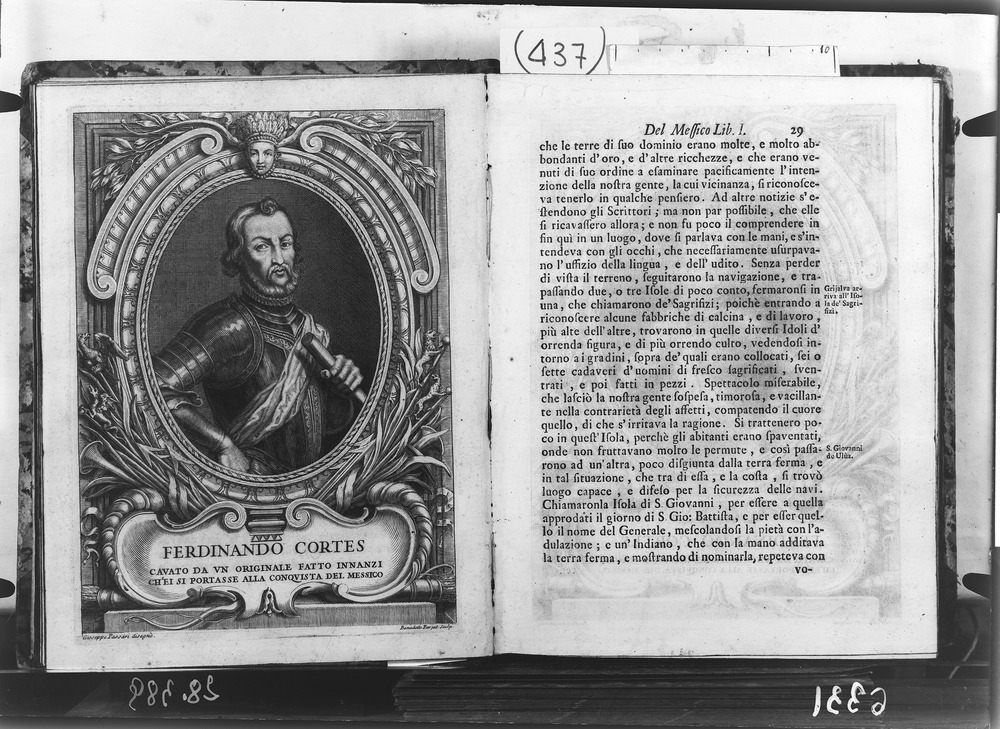 (437)
10
FERDINANDO CORTES
CAVATO DA VN ORIGINALE FATTO INNANZI
CH'EI SI PORTASSE ALLA CONQVISTA DEL MESSICO
Giuseppe Passari disegnò.
Benedetto Farjat Sculp.
Del Meſſico Lib. I. 29
che le terre di ſuo dominio erano molte, e molto ab-
bondanti d'oro, e d'altre ricchezze, e che erano ve-
nuti di ſuo ordine a eſaminare pacificamente l'inten-
zione della noſtra gente, la cui vicinanza, ſi riconoſce-
va tenerlo in qualche penſiero. Ad altre notizie s'e-
ſtendono gli Scrittori; ma non par poſſibile, che elle
ſi ricavaſſero allora; e non fu poco il comprendere in
fin quì in un luogo, dove ſi parlava con le mani, e s'in-
tendeva con gli occhi, che neceſſariamente uſurpava-
no l'uffizio della lingua, e dell'udito. Senza perder
di viſta il terreno, ſeguitarono la navigazione, e tra-
paſſando due, o tre Iſole di poco conto, fermaronſi in
una, che chiamarono de' Sagrifizi; poichè entrando a
riconoſcere alcune fabbriche di calcina, e di lavoro,
più alte dell'altre, trovarono in quelle diverſi Idoli d'
orrenda figura, e di più orrendo culto, vedendoſi in-
torno a i gradini, ſopra de' quali erano collocati, ſei o
ſette cadaveri d'uomini di freſco ſagrificati, ſven-
trati, e poi fatti in pezzi. Spettacolo miſerabile,
che laſciò la noſtra gente ſoſpeſa, timoroſa, e vacillan-
te nella contrarietà degli affetti, compatendo il cuore
quello, di che s'irritava la ragione. Si trattenero po-
co in queſt'Iſola, perchè gli abitanti erano ſpaventati,
onde non fruttavano molto le permute, e così paſſa-
rono ad un'altra, poco diſgiunta dalla terra ferma, e
in tal ſituazione, che tra di eſſa, e la coſta, ſi trovò
luogo capace, e difeſo per la ſicurezza delle navi.
Chiamaronla Iſola di S. Giovanni, per eſſere a quella
approdati il giorno di S. Gio: Battiſta, e per eſſer quel-
lo il nome del Generale, meſcolandoſi la pietà con l'a-
dulazione; e un'Indiano, che con la mano additava
la terra ferma, e moſtrando di nominarla, repeteva con
vo-
Grijalva ar-
riva all' Iſo-
la de' Sagri-
fizi.
S. Giovanni
de Ulùa.
28.389
6331